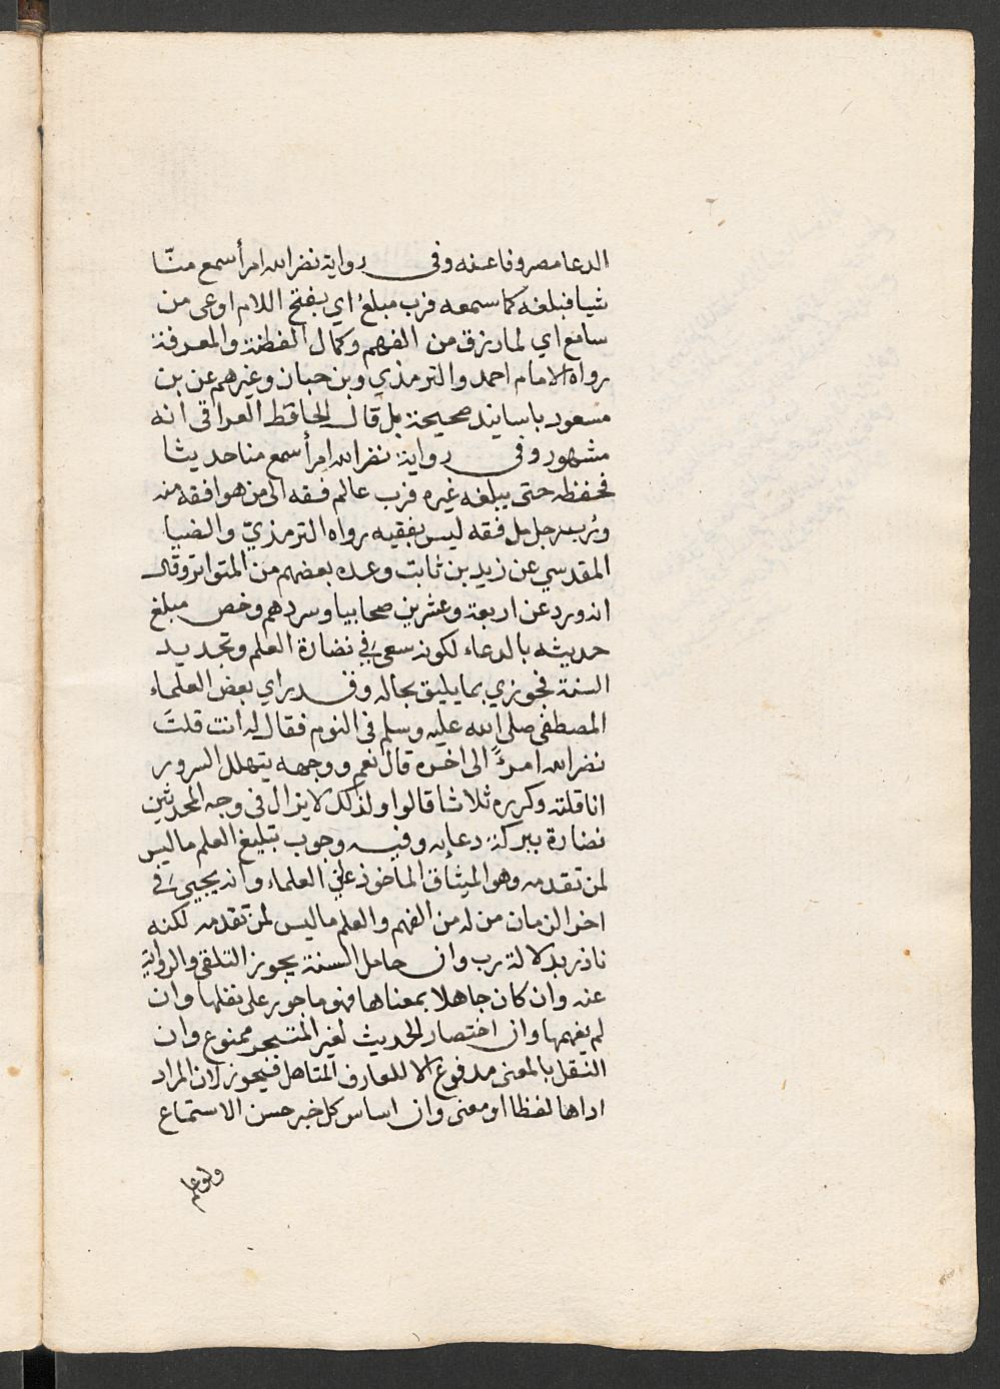 الدعا مصروفا عنه وفى رواية نضر الله امرأ سمع منّا
شيا فبلغه كما سمعه فرب مبلغ اي بفتح اللام اوعى من
سامع اي لما رزق من الفهم وكمال الفطنة والمعرفة
رواه الامام احمد والترمذي وبن حبان وغيرهم عن بن
مسعود باسانيد صحيحة بل قال الحافظ العراقى انه
مشهور وفى رواية نضر الله امرأ سمع منا حديثا
فحفظه حتى يبلغه غيره فرب عالم فقه الى من هو افقه منه
ورُب رجل مل فقه ليس بفقيه رواه الترمذيّ والضيا
المقدسي عن زيد بن ثابت وعده بعضهم من المتواتر وقال
انه ورد عن اربعة وعشرين صحابيا وسردهم وخص مبلغ
حديثه بالدعاء لكونه سعى في نضارة العلم وتجديد
السنة فجوزي بما يليق بحاله وقد راي بعض العلماء
المصطفى صلى الله عليه وسلم فى النوم فقال له انت قلت
نضر الله امرءً الى اخره قال نعم ووجهه يتهلل السرور
انا قلته وكرره ثلاثا قالوا ولذلك لا يزال فى وجه المحدثين
نضارة ببركة دعايه وفيه وجوب تبليغ العلم ما ليس
لمن تقدمه وهو الميثاق الماخوذ على العلماء وانه يجيئ في
اخر الزمان من له من الفهم والعلم ما ليس لمن تقدمه لكنه
نادر بدلالة رب وان حامل السنة يجوز التلقى والرواية
عنه وان كان جاهلا بمعناها فهو ماجور على نقلها وان
لم يفهمها وان اختصار الحديث لغير المتبحر ممنوع وان
النقل بالمعنى مدفوع الا للعارف المتاهل فيجوز لان المراد
اداها لفظا او معنى وان اساس كل خير حسن الاستماع
ولو علم